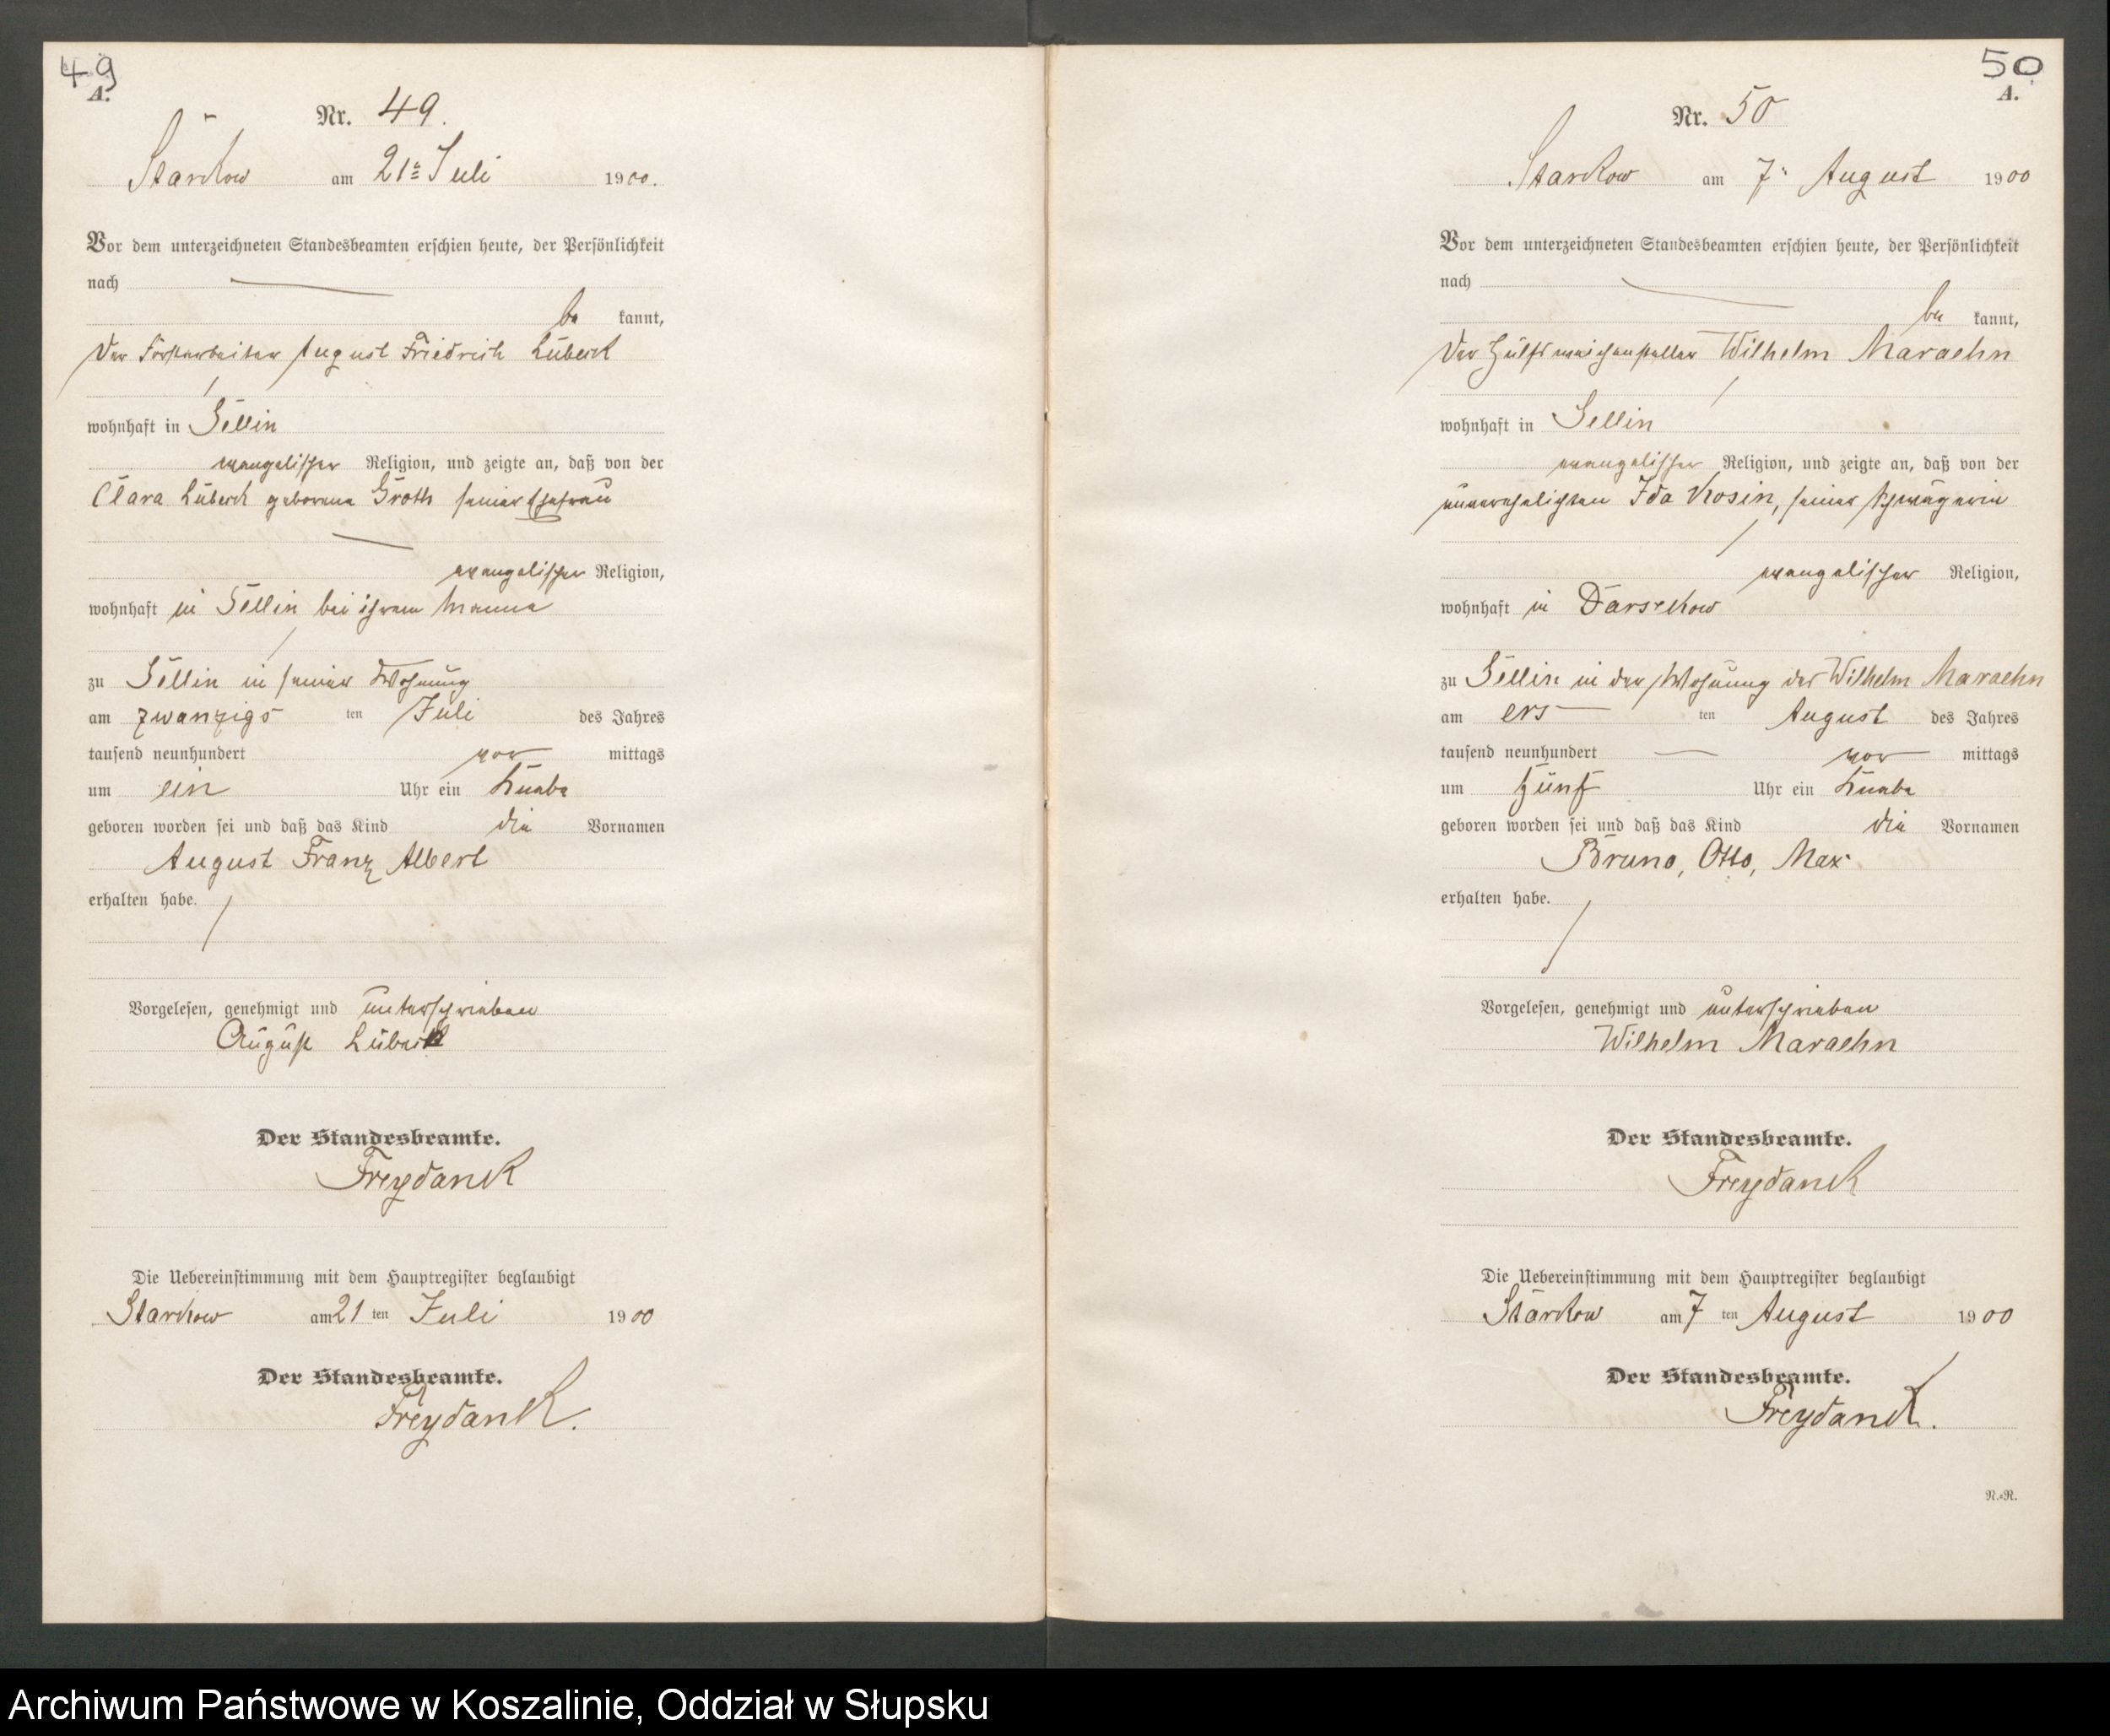 49
A.
Nr. 49.
Starkow am 21ᵗ Juli 1900.
Vor dem unterzeichneten Standesbeamten erschien heute, der Persönlichkeit
nach
be kannt,
der Forstarbeiter August Friedrich Lübeck
wohnhaft in Sellin
evangelischer Religion, und zeigte an, daß von der
Clara Lübeck geborene Groth seiner Ehefrau
evangelischer Religion,
wohnhaft in Sellin bei ihrem Manne
zu Sellin in seiner Wohnung
am zwanzigs ten Juli des Jahres
tausend neunhundert vor mittags
um ein Uhr ein Knabe
geboren worden sei und daß das Kind die Vornamen
August Franz Albert
erhalten habe.
Vorgelesen, genehmigt und unterschrieben
August Lübeck
Der Standesbeamte.
Freydank
Die Uebereinstimmung mit dem Hauptregister beglaubigt
Starkow am 21 ten Juli 1900
Der Standesbeamte.
Freydank.
50
A.
Nr. 50
Starkow am 7. August 1900
Vor dem unterzeichneten Standesbeamten erschien heute, der Persönlichkeit
nach
be kannt,
der Hülfsweichensteller Wilhelm Maraehn
wohnhaft in Sellin
evangelischer Religion, und zeigte an, daß von der
unverehelichten Ida Kosin, seiner Schwägerin
evangelischer Religion,
wohnhaft in Darsekow
zu Sellin in der Wohnung des Wilhelm Maraehn
am ers ten August des Jahres
tausend neunhundert vor mittags
um fünf Uhr ein Knabe
geboren worden sei und daß das Kind die Vornamen
Bruno, Otto, Max
erhalten habe.
Vorgelesen, genehmigt und unterschrieben
Wilhelm Maraehn
Der Standesbeamte.
Freydank
Die Uebereinstimmung mit dem Hauptregister beglaubigt
Starkow am 7 ten August 1900
Der Standesbeamte.
Freydank.
R.=R.
Archiwum Państwowe w Koszalinie, Oddział w Słupsku